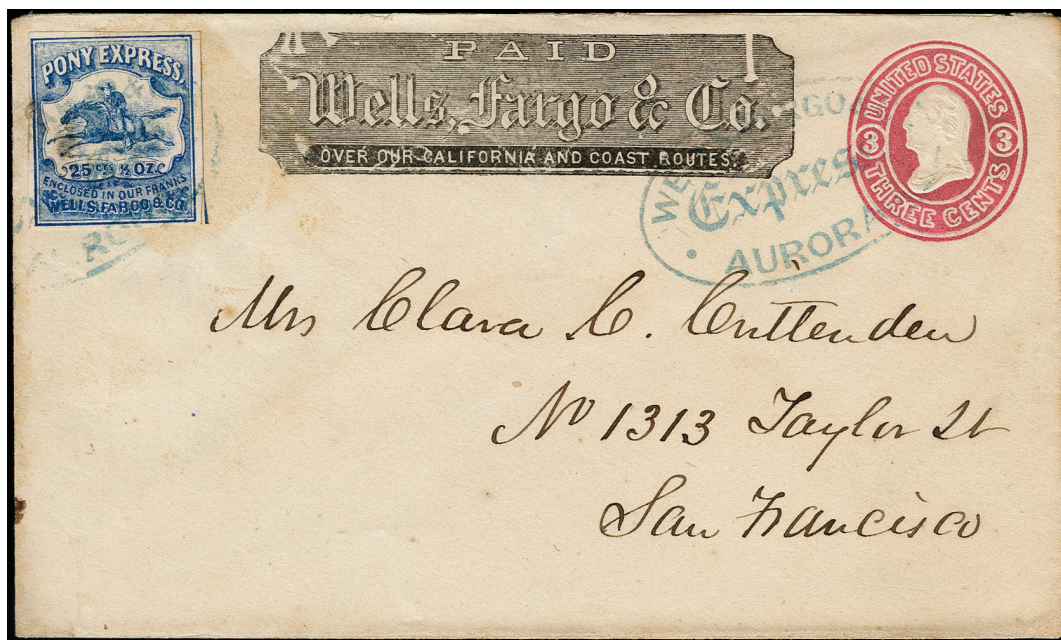 PONY EXPRESS,
25 CTS ½ OZ.
ENCLOSED IN OUR FRANKS
WELLS, FARGO & CO.
PAID
Wells, Fargo & Co.
OVER OUR CALIFORNIA AND COAST ROUTES.
UNITED STATES
3 3
THREE CENTS
Express
AURORA
Mrs Clara C. Cuttenden
No 1313 Taylor St
San Francisco